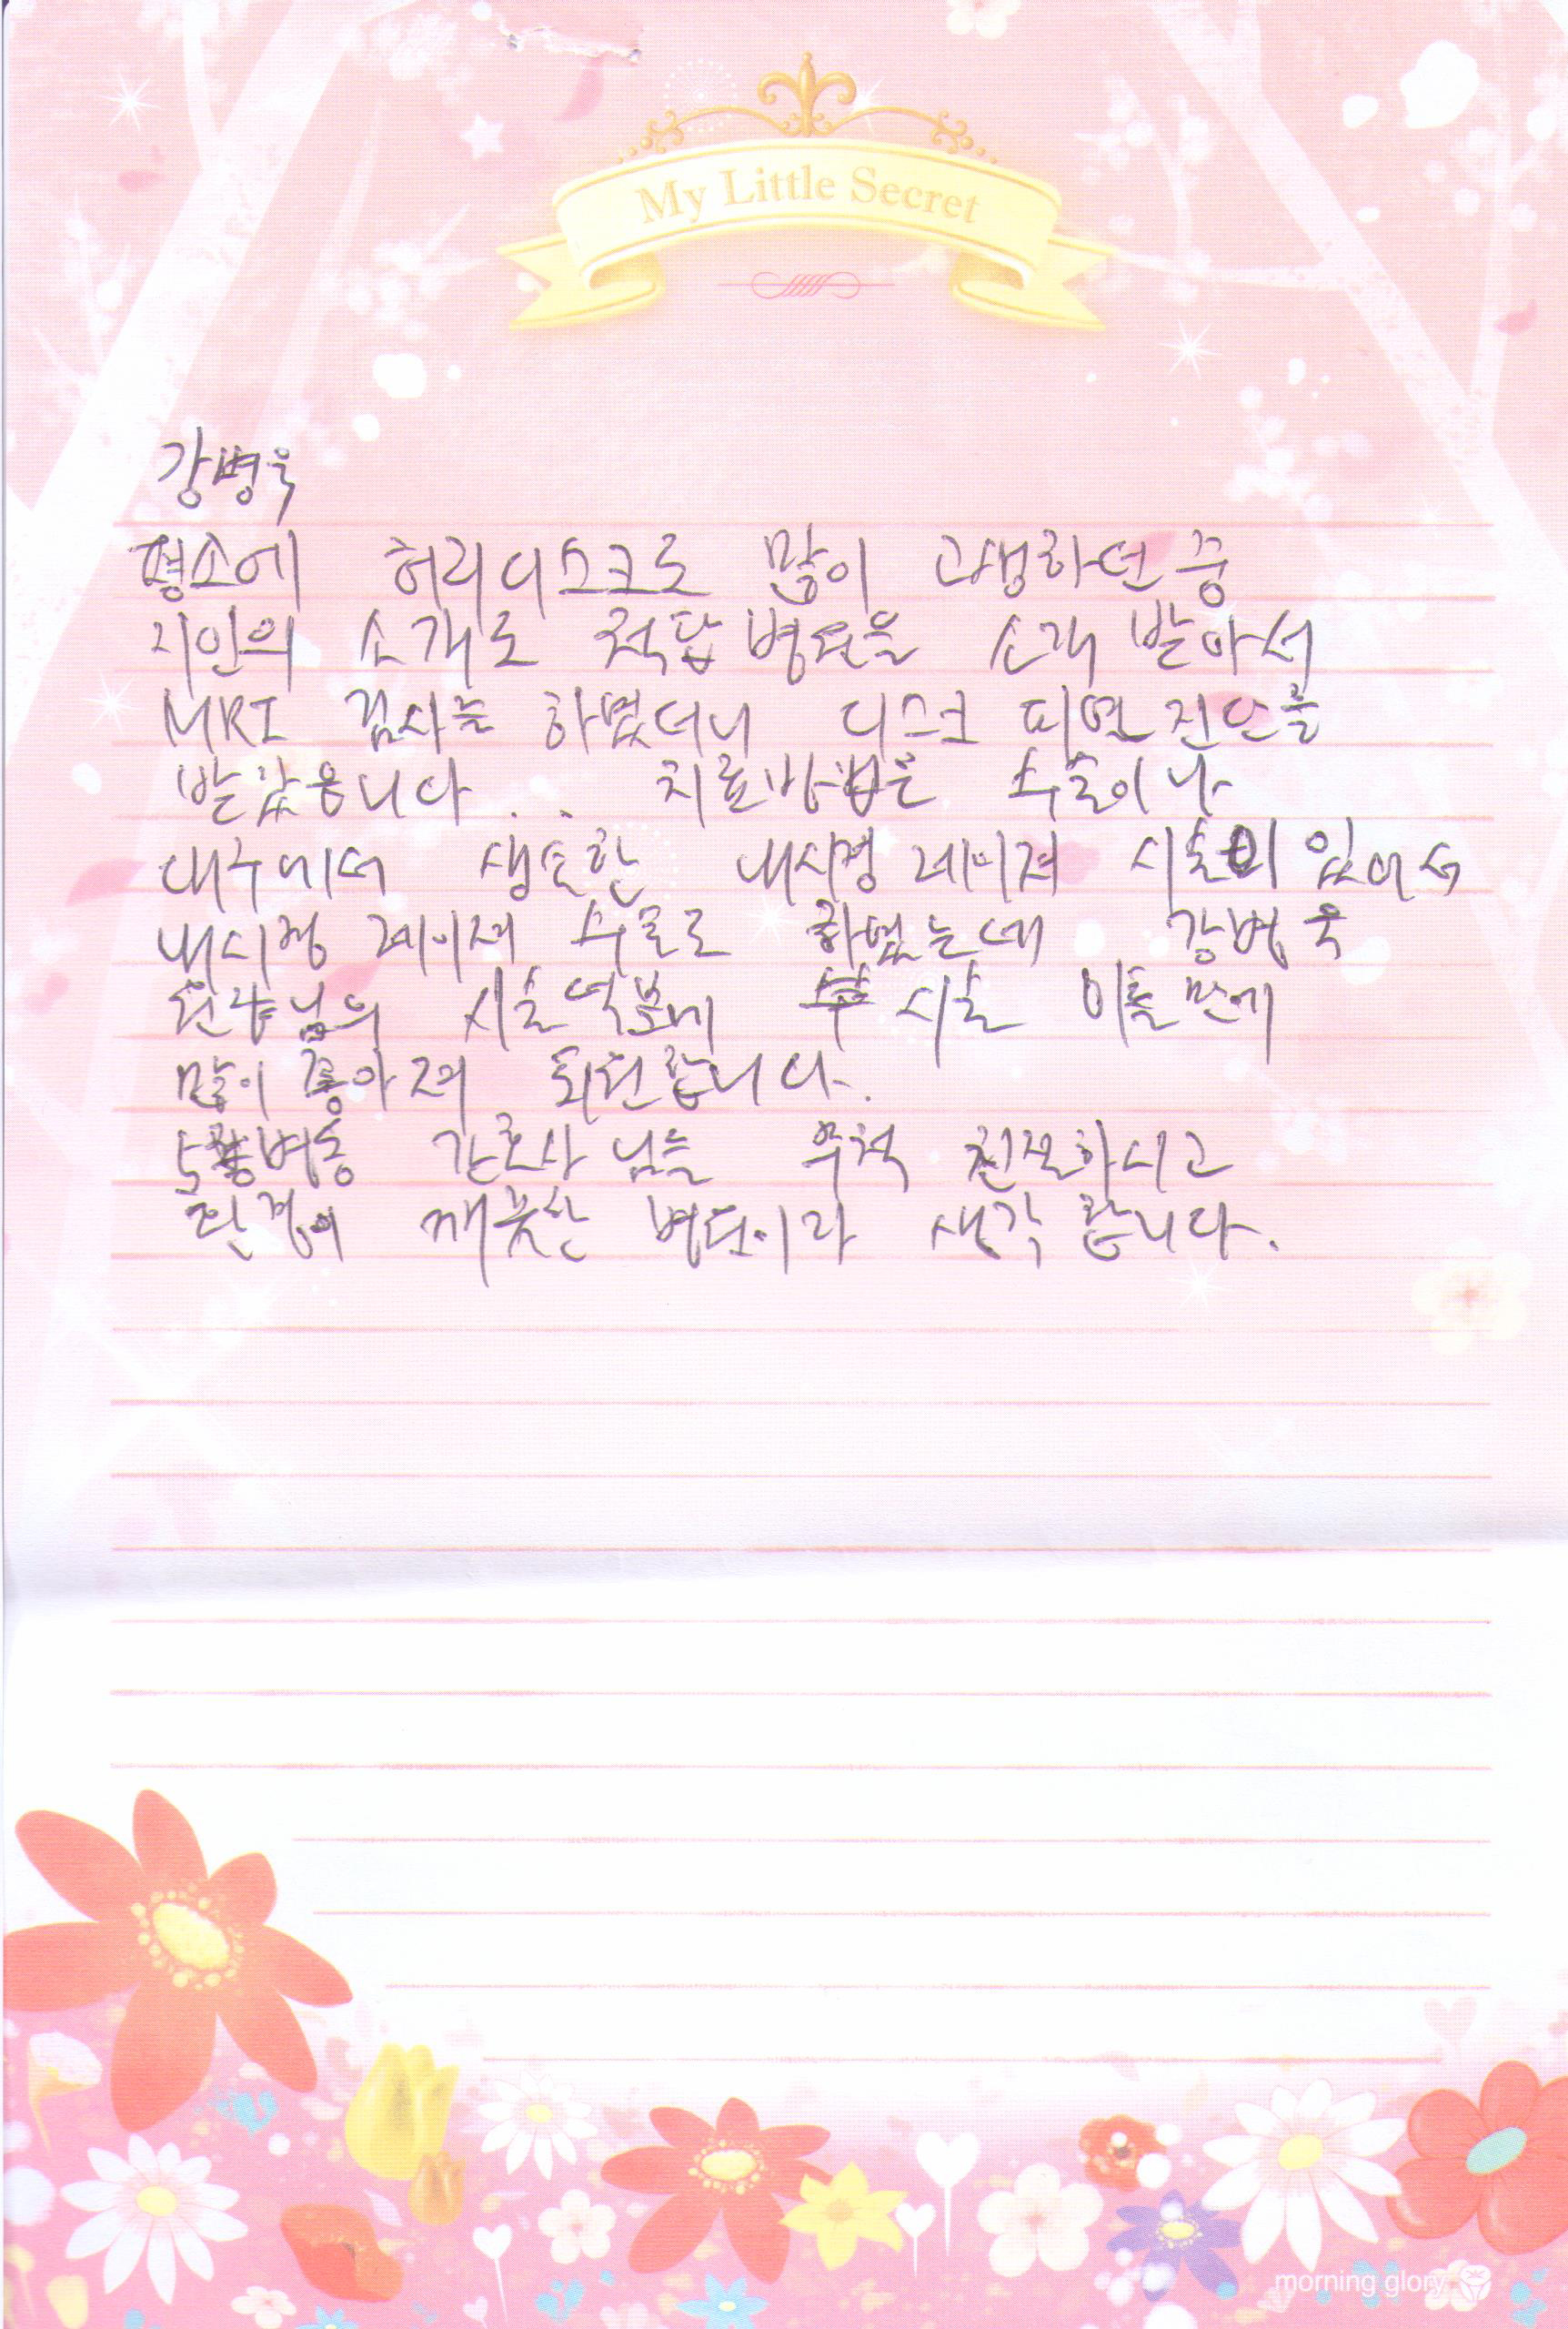 My Little Secret
강병욱
평소에 허리디스크로 많이 고생하던 중
지인의 소개로 척탑병원을 소개 받아서
MRI 검사를 하였더니 디스크 파열 진단을
받았읍니다... 치료방법은 수술이나
대구에서 생소한 내시경 레이져 시술이 있어서
내시경 레이져 수술로 하였는데 강병욱
원장님의 시술 덕분에 시술 이틀만에
많이 좋아져 퇴원합니다.
5병동 간호사님들 무척 친절하시고
환경이 깨끗한 병원이라 생각합니다.
morning glory